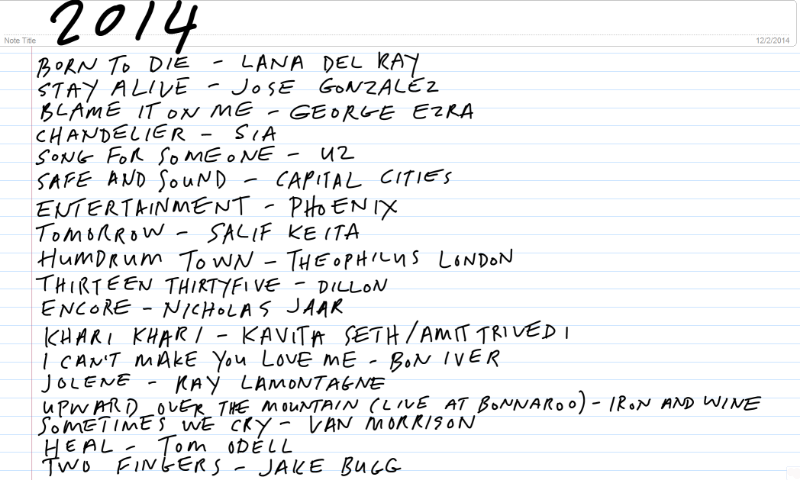 2014
Note Title
12/2/2014
BORN TO DIE - LANA DEL RAY
STAY ALIVE - JOSE GONZALEZ
BLAME IT ON ME - GEORGE EZRA
CHANDELIER - SIA
SONG FOR SOMEONE - U2
SAFE AND SOUND - CAPITAL CITIES
ENTERTAINMENT - PHOENIX
TOMORROW - SALIF KEITA
HUMDRUM TOWN - THEOPHILUS LONDON
THIRTEEN THIRTYFIVE - DILLON
ENCORE - NICHOLAS JAAR
KHARI KHARI - KAVITA SETH/AMIT TRIVEDI
I CAN'T MAKE YOU LOVE ME - BON IVER
JOLENE - RAY LAMONTAGNE
UPWARD OVER THE MOUNTAIN (LIVE AT BONNAROO) - IRON AND WINE
SOMETIMES WE CRY - VAN MORRISON
HEAL - TOM ODELL
TWO FINGERS - JAKE BUGG